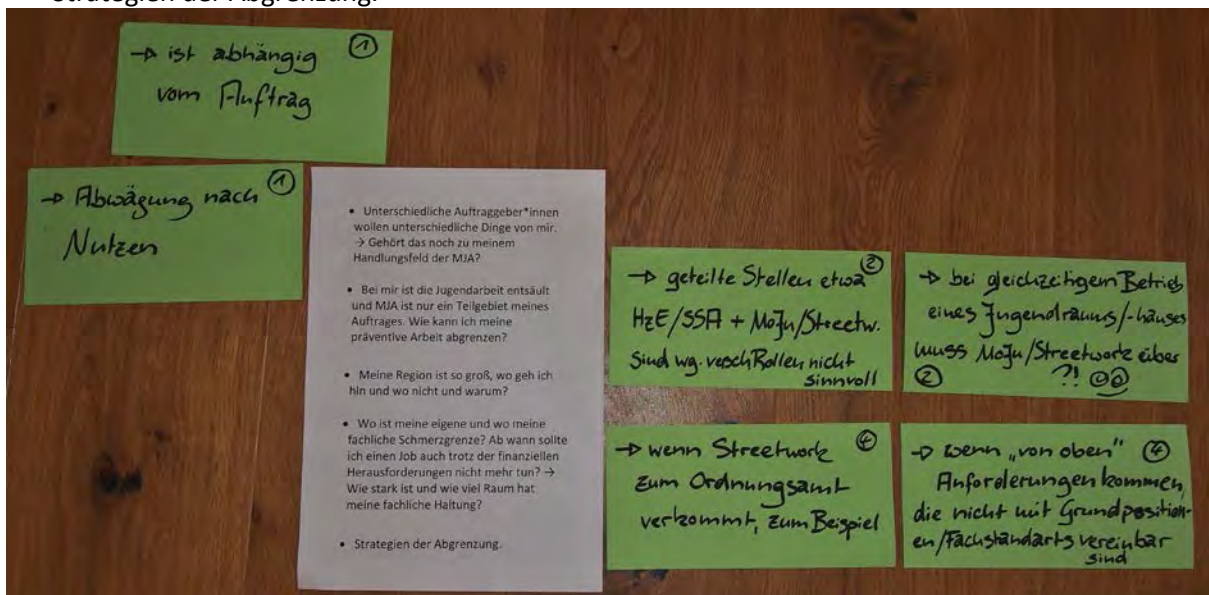 Strategien der Abgrenzung.
→ ist abhängig ①
vom Auftrag
→ Abwägung nach ①
Nutzen
• Unterschiedliche Auftraggeber*innen
wollen unterschiedliche Dinge von mir.
→ Gehört das noch zu meinem
Handlungsfeld der MJA?
• Bei mir ist die Jugendarbeit entsäult
und MJA ist nur ein Teilgebiet meines
Auftrages. Wie kann ich meine
präventive Arbeit abgrenzen?
• Meine Region ist so groß, wo geh ich
hin und wo nicht und warum?
• Wo ist meine eigene und wo meine
fachliche Schmerzgrenze? Ab wann sollte
ich einen Job auch trotz der finanziellen
Herausforderungen nicht mehr tun? →
Wie stark ist und wie viel Raum hat
meine fachliche Haltung?
• Strategien der Abgrenzung.
→ geteilte Stellen etwa ②
HzE/SSA + MoJu/Streetw.
sind wg. versch Rollen nicht
sinnvoll
→ bei gleichzeitigem Betrieb
eines Jugendraums/-hauses
muss MoJu/Streetwork über
② ?!
→ wenn Streetwork ④
zum Ordnungsamt
verkommt, zum Beispiel
→ wenn „von oben" ④
Anforderungen kommen,
die nicht mit Grundposition-
en/Fachstandarts vereinbar
sind